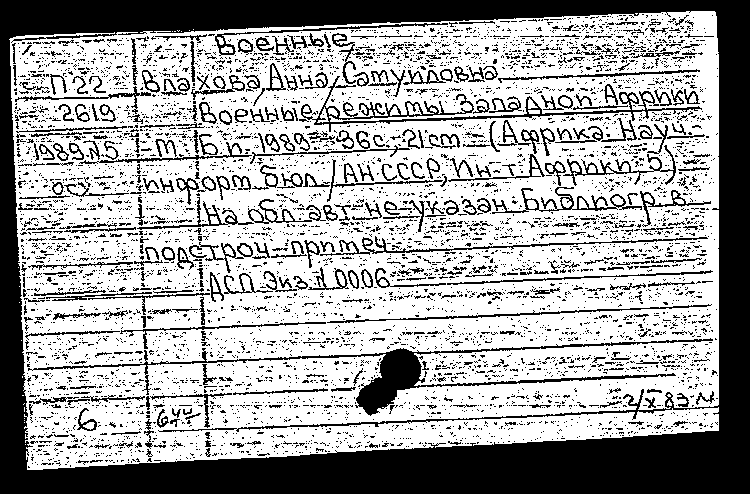 Военные
П 22 Влахова, Анна Самуиловна.
2619 Военные режимы Западной Африки
1989 N5 -М. Б.и., 1989 - 36с.; 21см - (Африка: Науч.-
осх информ. бюл / АН СССР, Ин-т Африки; 5)
На обл. авт. не указан. Библиогр. в
подстроч. примеч.
ДСП Экз. N 0006
6 644 2/X 83